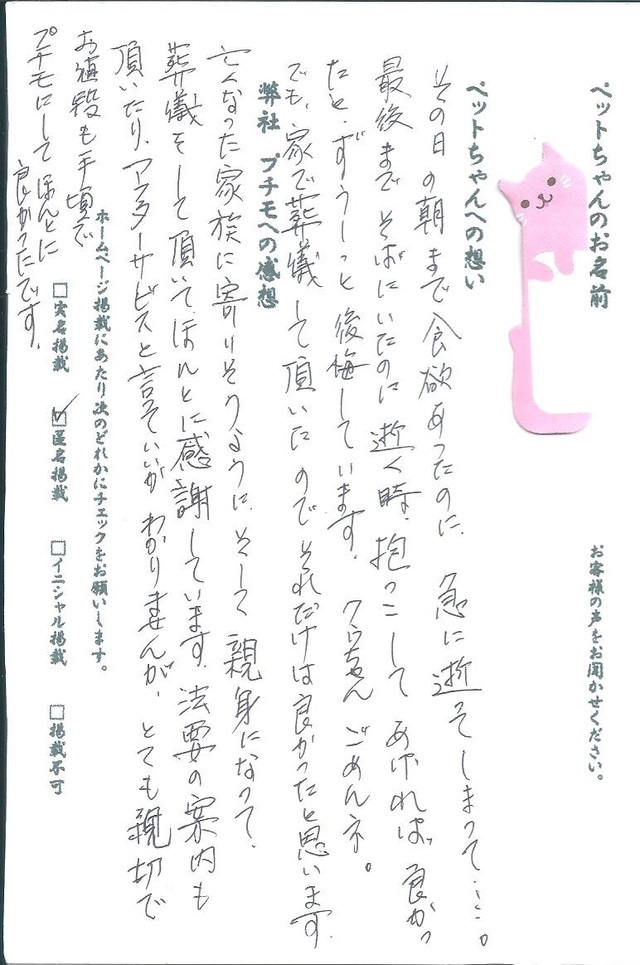 ペットちゃんのお名前
お客様の声をお聞かせください。
ペットちゃんへの想い
その日の朝まで食欲あったのに、急に逝ってしまって……。
最後までそばにいたのに逝く時、抱っこしてあげれば、良かっ
たと、ずぅーっと後悔しています。クウちゃんごめんネ。
でも、家で葬儀して頂いたのでそれだけは良かったと思います。
弊社 プチモへの感想
亡くなった家族に寄りそうように、そして親身になって、
葬儀をして頂いて、ほんとに感謝しています。法要の案内も
頂いたり、アフターサービスと言っていいかわかりませんが、とても親切で
お値段も手頃で
プチモにしてほんとに
良かったです。
ホームページ掲載にあたり次のどれかにチェックをお願いします。
□実名掲載 ☑匿名掲載 □イニシャル掲載 □掲載不可